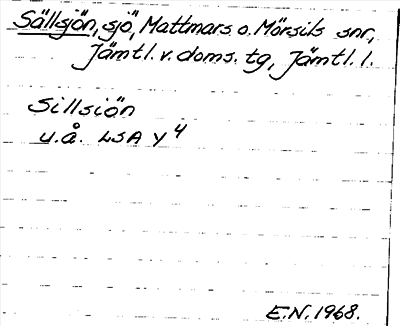 Sällsjön, sjö, Mattmars o. Mörsils snr,
Jämtl. v. doms. tg, Jämtl. l.
Sillsiön
u.å. LSA Y4
E.N. 1968.